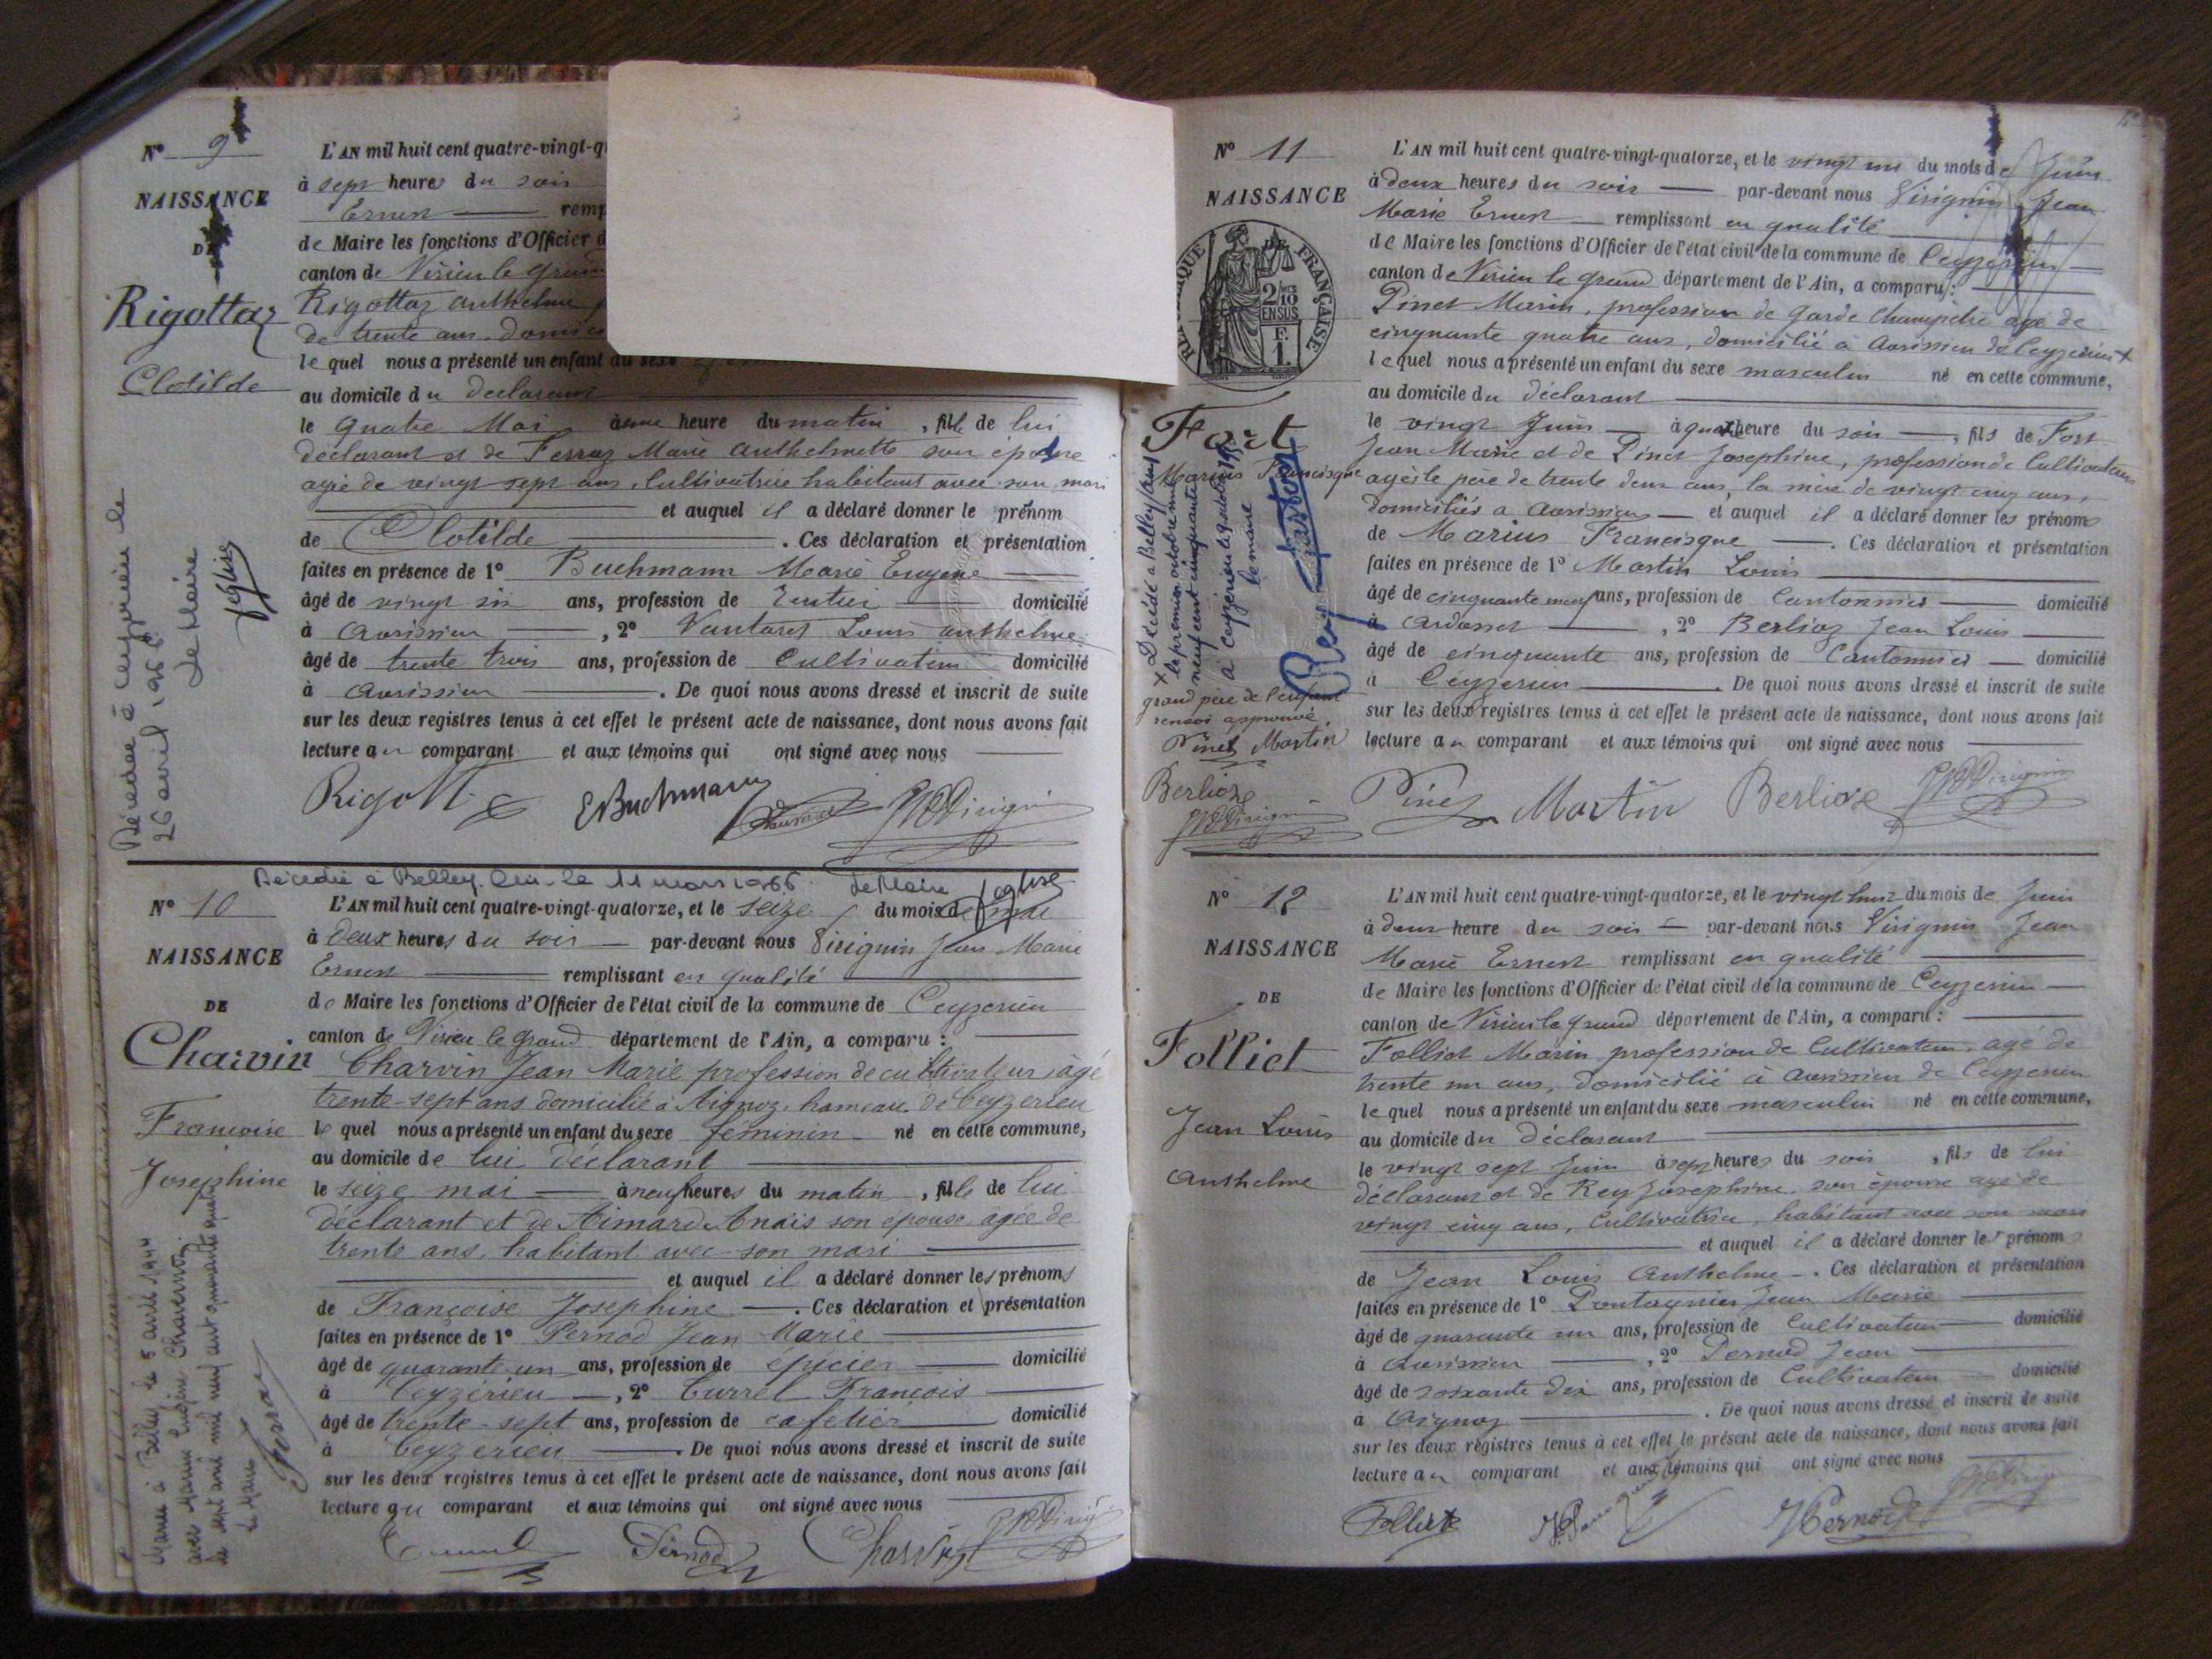 N° 9
NAISSANCE
DE
Rigottaz
Clotilde
Décédée à Ceyzérieu le
26 avril 1966
Le Maire
L'AN mil huit cent quatre-vingt-q
à sept heures du soir
Ernest remp
de Maire les fonctions d'Officier d
canton de Virieu le grand
Rigottaz Anthelme
de trente ans, domici
lequel nous a présenté un enfant du sexe
au domicile du déclarant
le quatre Mai à une heure du matin, fille de lui
déclarant et de Ferraz Marie Anthelmette son épouse
agée de vingt sept ans, Cultivatrice habitant avec son mari
et auquel il a déclaré donner le prénom
de Clotilde . Ces déclaration et présentation
faites en présence de 1° Buchmann Marie Eugene
âgé de vingt six ans, profession de Rentier domicilié
à Avrissieu , 2° Vantaret Louis Anthelme
âgé de trente trois ans, profession de Cultivateur domicilié
à Avrissieu . De quoi nous avons dressé et inscrit de suite
sur les deux registres tenus à cet effet le présent acte de naissance, dont nous avons fait
lecture au comparant et aux témoins qui ont signé avec nous
EBuchmann
Décédée à Belley Ain le 11 mars 1966 Le Maire
N° 10
NAISSANCE
DE
Charvin
Francoise
Josephine
Mariée à Belley le 5 avril
avec Marin Eugène
Le Maire
L'AN mil huit cent quatre-vingt-quatorze, et le seize du mois de mai
à deux heures du soir par-devant nous Virignin Jean Marie
Ernest remplissant en qualité
de Maire les fonctions d'Officier de l'état civil de la commune de Ceyzerieu
canton de Virieu le grand département de l'Ain, a comparu :
Charvin Jean Marie profession de cultivateur, âgé
trente-sept ans domicilié à Aignoz, hameau de Ceyzerieu
lequel nous a présenté un enfant du sexe féminin né en cette commune,
au domicile de lui déclarant
le seize mai à neuf heures du matin, fille de lui
déclarant et de Aimard Anaïs son épouse, âgée de
trente ans, habitant avec son mari
et auquel il a déclaré donner les prénoms
de Françoise Josephine . Ces déclaration et présentation
faites en présence de 1° Pernod Jean Marie
âgé de quarante-un ans, profession de épicier domicilié
à Ceyzérieu , 2° Currel François
âgé de trente-sept ans, profession de cafetier domicilié
à Ceyzerieu . De quoi nous avons dressé et inscrit de suite
sur les deux registres tenus à cet effet le présent acte de naissance, dont nous avons fait
lecture au comparant et aux témoins qui ont signé avec nous
Pernod Charvin
N° 11
NAISSANCE
DE
RÉPUBLIQUE FRANÇAISE
2/10 EN SUS
F. 1.
Fort
Marius Francisque
x Décédé à Belley (Ain)
le premier octobre mil
neuf cent cinquante
à Ceyzérieu le 9 octobre
le maire
grand père de l'enfant
renvoi approuvé
Pinet Martin
Berlioz
L'AN mil huit cent quatre-vingt-quatorze, et le vingt un du mois de Juin
à deux heures du soir par-devant nous Virignin Jean
Marie Ernest remplissant en qualité
de Maire les fonctions d'Officier de l'état civil de la commune de Ceyzerieu
canton de Virieu le grand département de l'Ain, a comparu :
Pinet Marin, profession de garde Champetre agé de
cinquante quatre ans, domicilié à Avrissieu de Ceyzerieu x
lequel nous a présenté un enfant du sexe masculin né en cette commune,
au domicile du déclarant
le vingt Juin à quatre heure du soir , fils de Fort
Jean Marie et de Pinet Josephine, profession de Cultivateurs
agés le père de trente deux ans, la mère de vingt cinq ans,
domiciliés a Avrissieu et auquel il a déclaré donner les prénoms
de Marius Francisque . Ces déclaration et présentation
faites en présence de 1° Martin Louis
âgé de cinquante neuf ans, profession de Cantonnier domicilié
à Ardosset , 2° Berlioz Jean Louis
âgé de cinquante ans, profession de Cantonnier domicilié
à Ceyzerieu . De quoi nous avons dressé et inscrit de suite
sur les deux registres tenus à cet effet le présent acte de naissance, dont nous avons fait
lecture au comparant et aux témoins qui ont signé avec nous
Pinet Martin Berlioz
N° 12
NAISSANCE
DE
Folliet
Jean Louis
Anthelme
L'AN mil huit cent quatre-vingt-quatorze, et le vingt huit du mois de Juin
à deux heure du soir par-devant nous Virignin Jean
Marie Ernest remplissant en qualité
de Maire les fonctions d'Officier de l'état civil de la commune de Ceyzerieu
canton de Virieu le grand département de l'Ain, a comparu :
Folliet Marin profession de Cultivateur, agé de
trente un ans, domicilié à Avrissieu de Ceyzerieu
lequel nous a présenté un enfant du sexe masculin né en cette commune,
au domicile du déclarant
le vingt sept Juin à sept heures du soir , fils de lui
déclarant et de Rey Josephine, son épouse agée de
vingt cinq ans, Cultivatrice, habitant avec son mari
et auquel il a déclaré donner les prénoms
de Jean Louis Anthelme . Ces déclaration et présentation
faites en présence de 1° Pontagnier Jean Marie
âgé de quarante un ans, profession de Cultivateur domicilié
à Avrissieu , 2° Pernod Jean
âgé de soixante dix ans, profession de Cultivateur domicilié
à Aignoz . De quoi nous avons dressé et inscrit de suite
sur les deux registres tenus à cet effet le présent acte de naissance, dont nous avons fait
lecture au comparant et aux témoins qui ont signé avec nous
Folliet JPernod